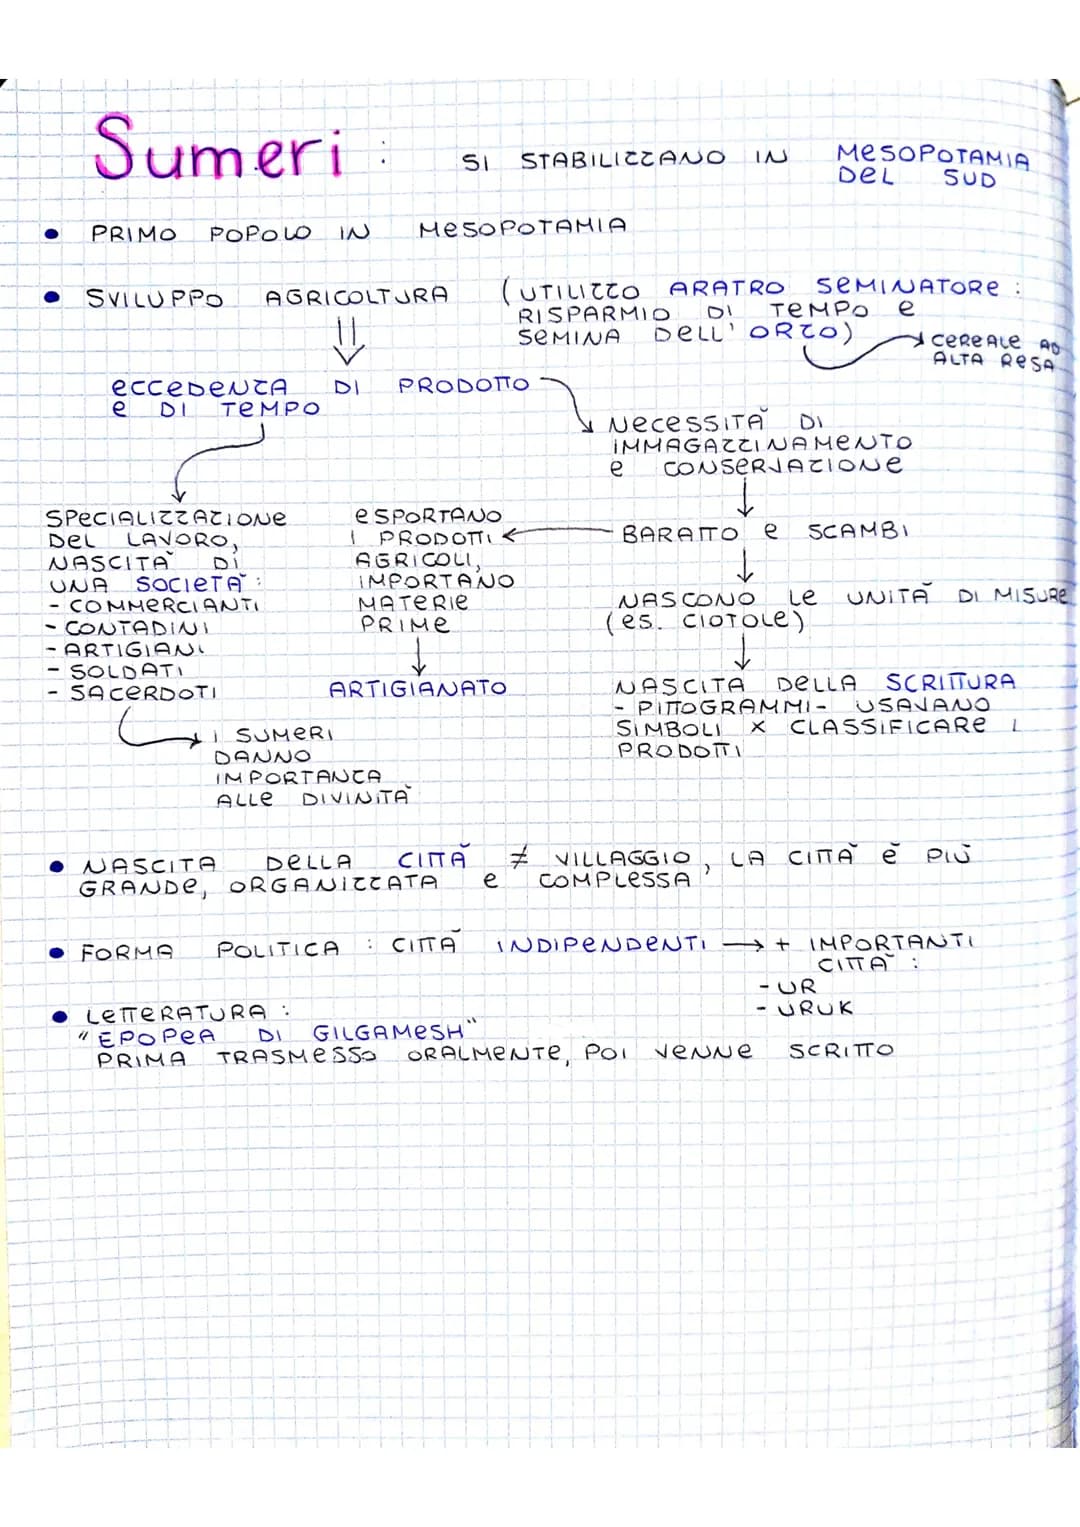 Sumeri : SI STABILIZZANO IN MESOPOTAMIA
DEL SUD
• PRIMO POPOLO IN MESOPOTAMIA
• SVILUPPO AGRICOLTURA (UTILIZZO ARATRO SEMINATORE :
RISPARMIO DI TEMPO e
SEMINA DELL'ORZO)
CEREALE AD
ALTA RESA
ECCEDENZA DI PRODOTTO
e DI TEMPO
NECESSITÀ DI
IMMAGAZZINAMENTO
e CONSERVAZIONE
SPECIALIZZAZIONE
DEL LAVORO,
NASCITA DI
UNA SOCIETÀ :
- COMMERCIANTI
- CONTADINI
- ARTIGIANI
- SOLDATI
- SACERDOTI
I SUMERI
DANNO
IMPORTANZA
ALLE DIVINITÀ
ESPORTANO
I PRODOTTI
AGRICOLI,
IMPORTANO
MATERIE
PRIME
ARTIGIANATO
BARATTO e SCAMBI
NASCONO LE UNITÀ DI MISURE
(es. CIOTOLE)
NASCITA DELLA SCRITTURA
- PITTOGRAMMI - USAVANO
SIMBOLI X CLASSIFICARE I
PRODOTTI
• NASCITA DELLA CITTÀ ≠ VILLAGGIO, LA CITTÀ È PIÙ
GRANDE, ORGANIZZATA e COMPLESSA
• FORMA POLITICA : CITTÀ INDIPENDENTI → + IMPORTANTI
CITTÀ :
- UR
- URUK
• LETTERATURA :
"EPOPEA DI GILGAMESH"
PRIMA TRASMESSO ORALMENTE, POI VENNE SCRITTO